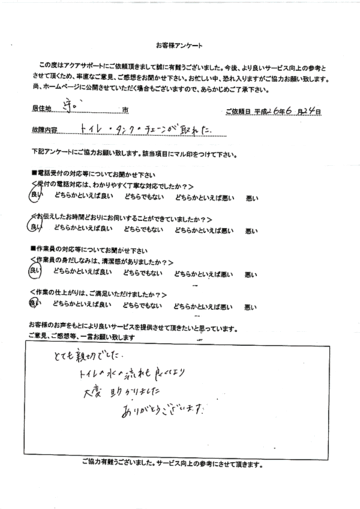 お客様アンケート
この度はアクアサポートにご依頼頂きまして誠に有難うございました。今後、より良いサービス向上の参考と
させて頂くため、率直なご意見、ご感想をお聞かせ下さい。お忙しい中、恐れ入りますがご協力お願い致します。
尚、ホームページに公開させていただく場合もございますので、あらかじめご了承下さい。
居住地 守口 市 ご依頼日 平成26年6月24日
故障内容 トイレ・タンク・チェーンが取れた
下記アンケートにご協力お願い致します。該当項目にマル印をつけて下さい。
■電話受付の対応等についてお聞かせ下さい
<受付の電話対応は、わかりやすく丁寧な対応でしたか?>
良い どちらかといえば良い どちらでもない どちらかといえば悪い 悪い
<お伝えしたお時間どおりにお伺いすることができていましたか?>
良い どちらかといえば良い どちらでもない どちらかといえば悪い 悪い
■作業員の対応等についてお聞かせ下さい
<作業員の身だしなみは、清潔感がありましたか?>
良い どちらかといえば良い どちらでもない どちらかといえば悪い 悪い
<作業の仕上がりは、ご満足いただけましたか?>
良い どちらかといえば良い どちらでもない どちらかといえば悪い 悪い
お客様のお声をもとにより良いサービスを提供させて頂きたいと思っています。
ご意見、ご感想等、一言お願い致します
とても親切でした。
トイレの水の流れも良くなり
大変助かりました
ありがとうございます。
ご協力有難うございました。サービス向上の参考にさせて頂きます。